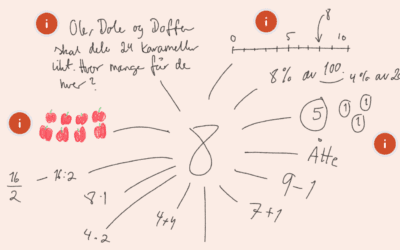 Ole, Dole og Doffen
skal dele 24 karameller
likt. Hvor mange får de
hver?
8
0 5 10
8% av 100
4% av
5 1 1 1
Åtte
9-1
7+1
4+4
4·2
8·1
16:2
16
2
8
i
i
i
i